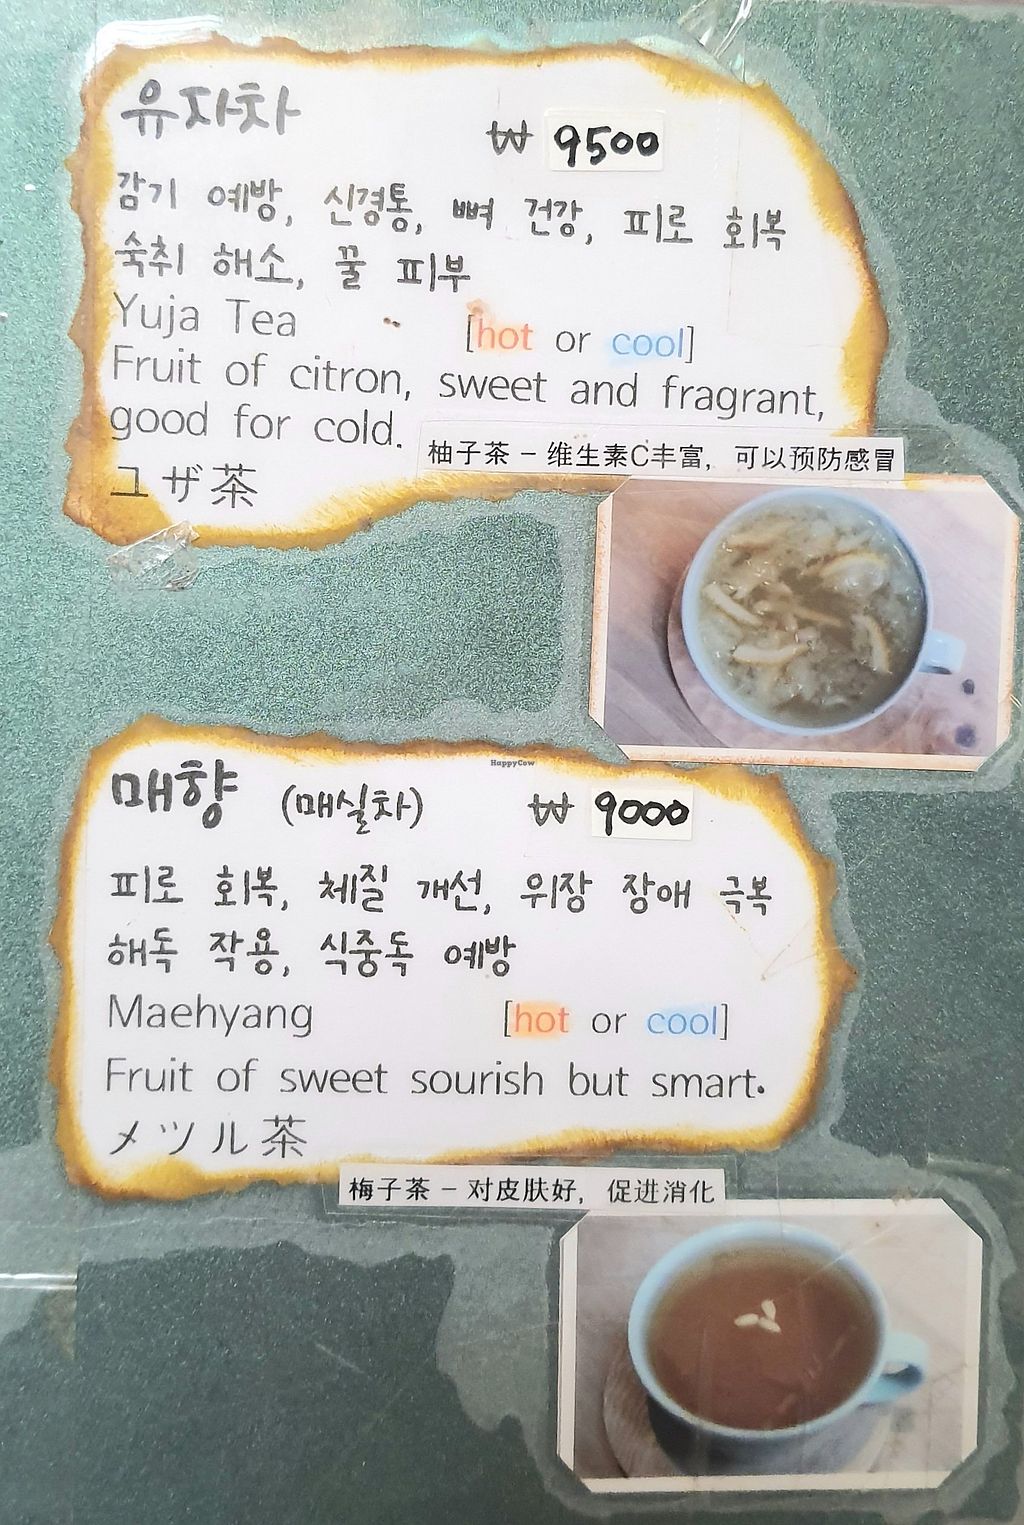 유자차
₩ 9500
감기 예방, 신경통, 뼈 건강, 피로 회복
숙취 해소, 꿀 피부
Yuja Tea [hot or cool]
Fruit of citron, sweet and fragrant,
good for cold.
柚子茶 – 维生素C丰富, 可以预防感冒
ユザ茶
HappyCow
매향 (매실차) ₩ 9000
피로 회복, 체질 개선, 위장 장애 극복
해독 작용, 식중독 예방
Maehyang [hot or cool]
Fruit of sweet sourish but smart.
メツル茶
梅子茶 – 对皮肤好, 促进消化